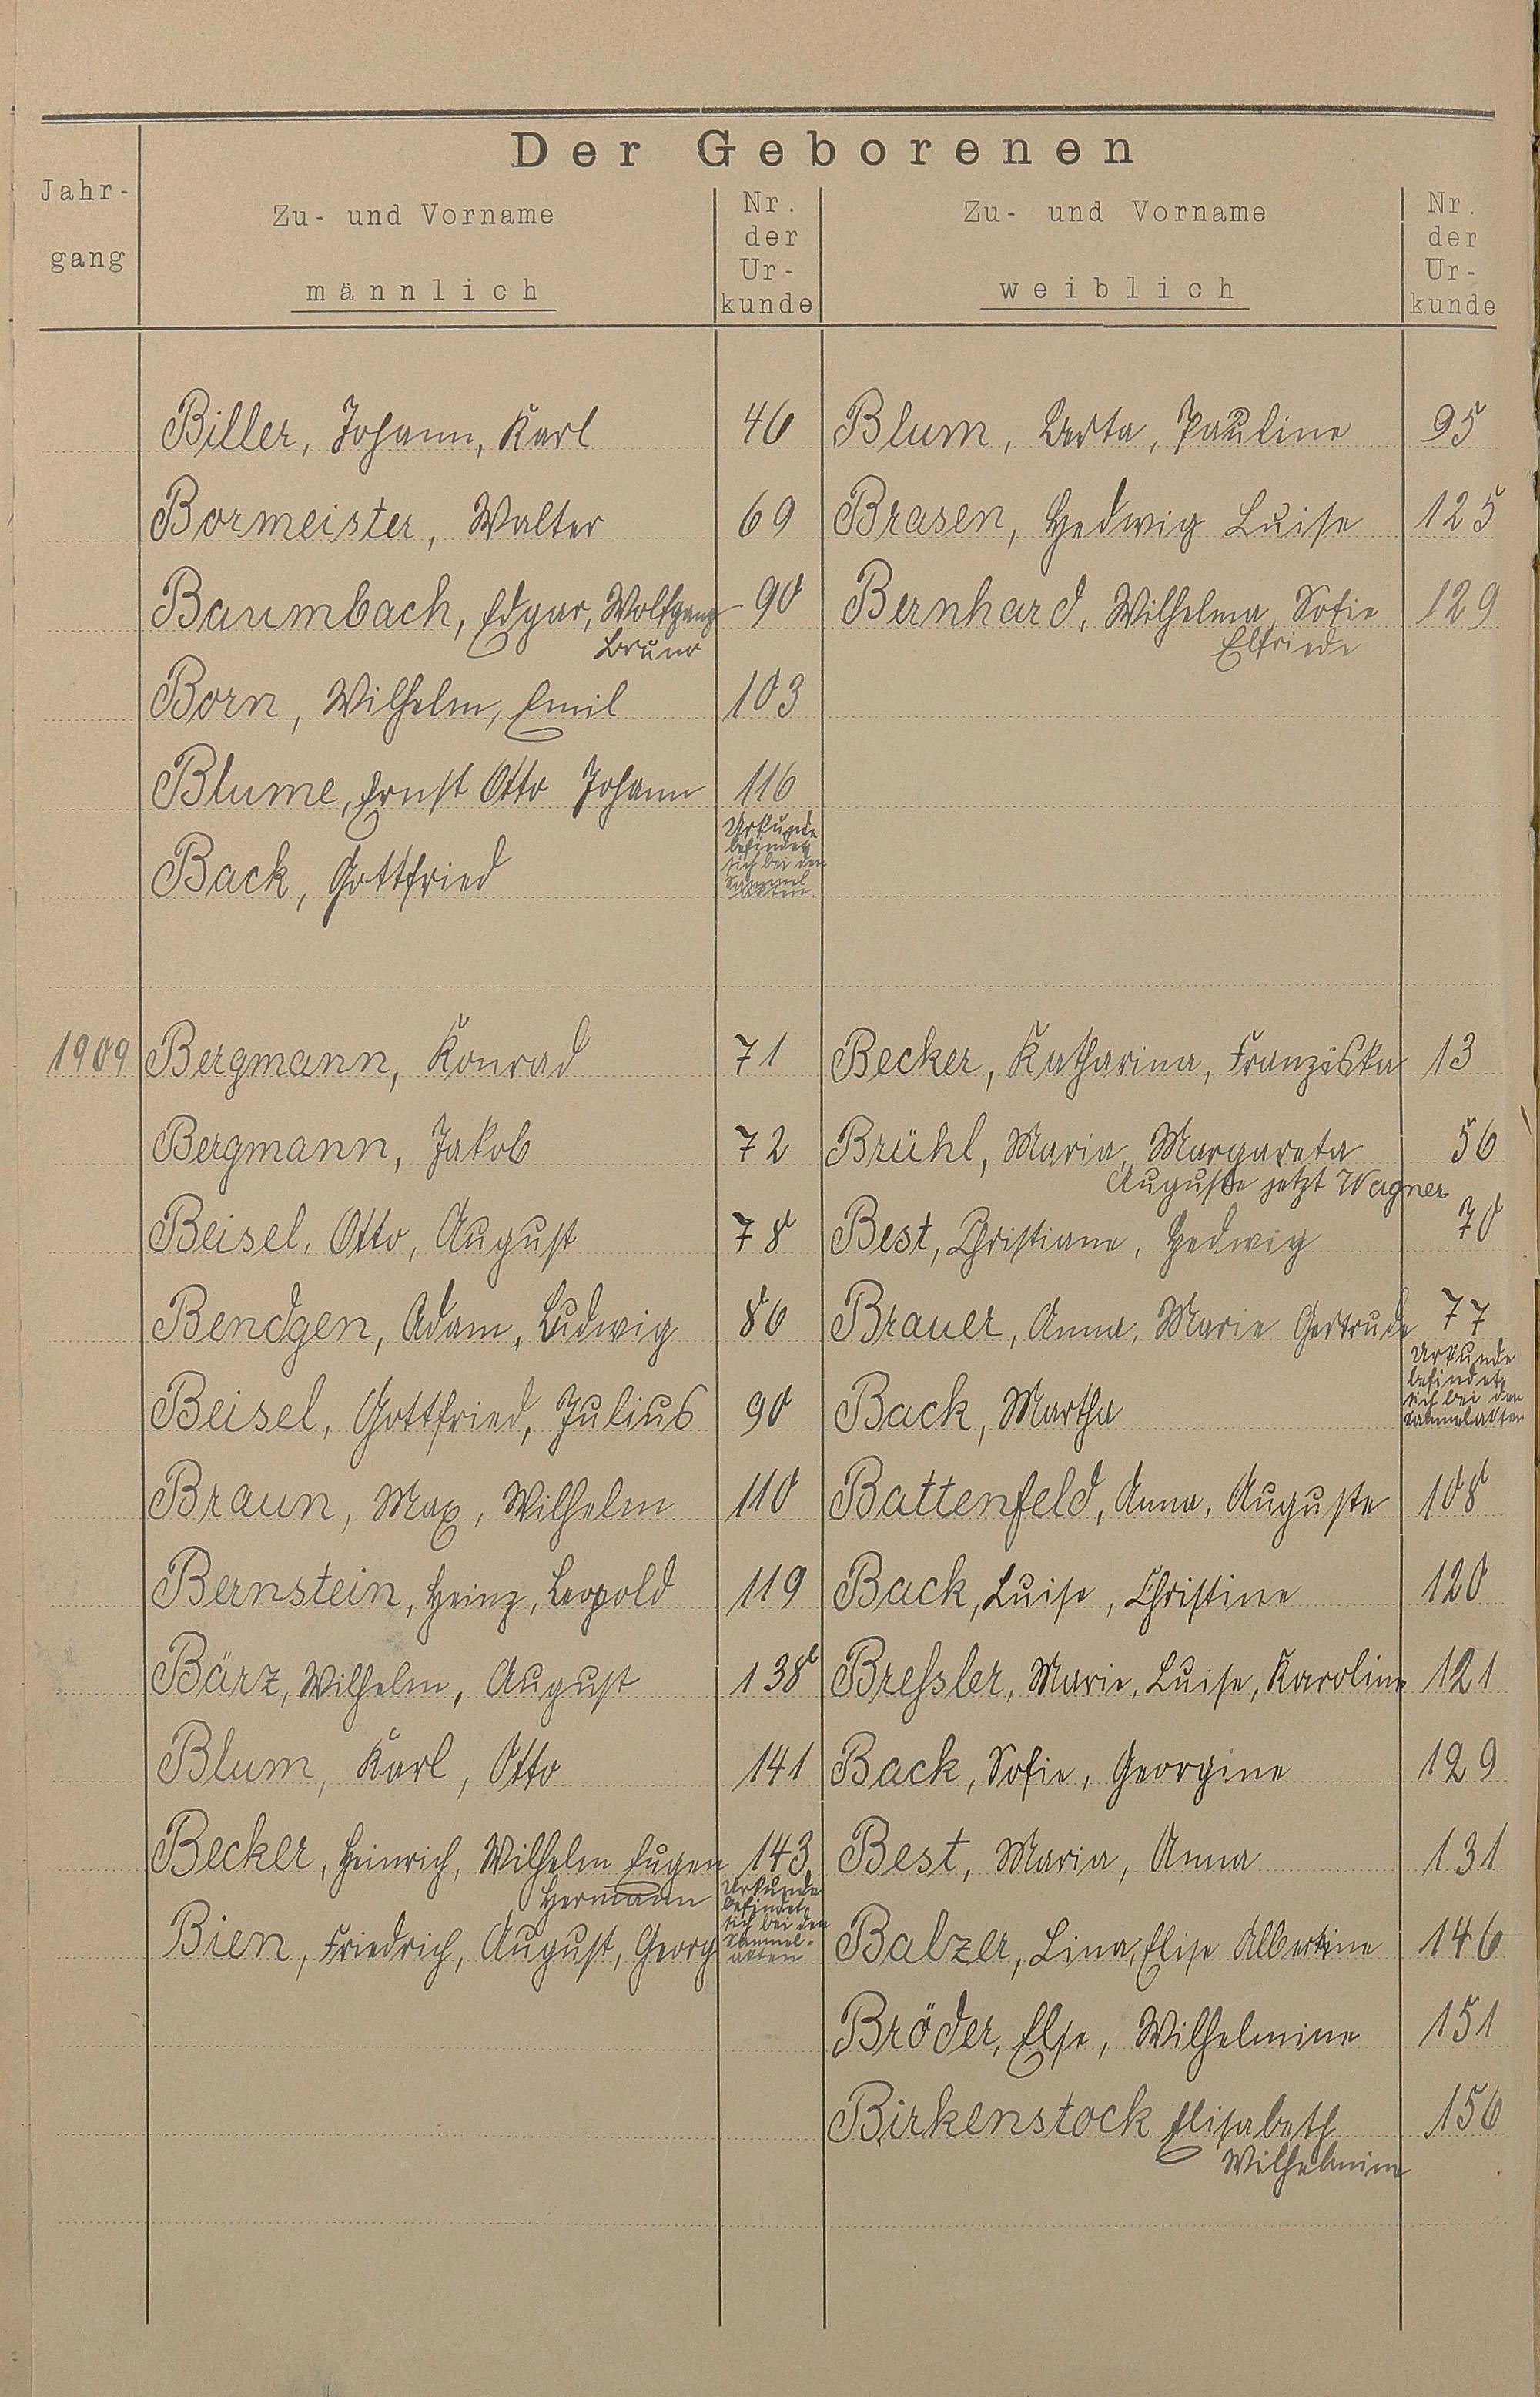 Der Geborenen
Jahr-
gang
Zu- und Vorname
männlich
Nr.
der
Ur-
kunde
Zu- und Vorname
weiblich
Nr.
der
Ur-
kunde
Biller, Johann, Karl 46 Blum, Berta, Pauline 95
Bormeister, Walter 69 Brasen, Hedwig Luise 125
Baumbach, Edgar, Wolfgang 90 Bernhard, Wilhelma, Sofie 129
Bruno Elfriede
Born, Wilhelm, Emil 103
Blume, Ernst Otto Johann 116
Back, Gottfried
Urkunde
befindet
sich bei den
Sammel
akten
1909 Bergmann, Konrad 71 Becker, Katharina, Franziska 13
Bergmann, Jakob 72 Brühl, Maria, Margareta 56
Auguste jetzt Wagner
Beisel, Otto, August 78 Best, Christiane, Hedwig 70
Bendgen, Adam, Ludwig 86 Brauer, Anna, Marie Gertrude 77
Beisel, Gottfried, Julius 90 Back, Martha
Urkunde
befindet
sich bei den
Sammelakten
Braun, Max, Wilhelm 110 Battenfeld, Anna, Auguste 108
Bernstein, Heinz, Leopold 119 Back, Luise, Christine 120
Bärz, Wilhelm, August 138 Breſsler, Marie, Luise, Karoline 121
Blum, Karl, Otto 141 Back, Sofie, Georgine 129
Becker, Heinrich, Wilhelm Eugen 143 Best, Maria, Anna 131
Hermann
Bien, Friedrich, August, Georg
Urkunde
befindet
sich bei den
Sammel-
akten
Balzer, Lina, Elise Albertine 146
Bröder, Else, Wilhelmine 151
Birkenstock Elisabeth 156
Wilhelmine